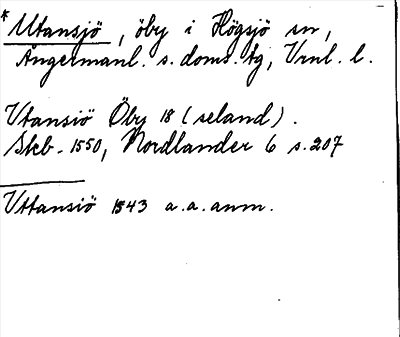 * Utansjö, öby i Högsjö sn,
Ångermanl. s. doms. tg, Vrnl. l.
Vtansiö Öby 18 (seland).
Skb. 1550, Nordlander 6 s. 207
Vttansiö 1543 a.a. anm.